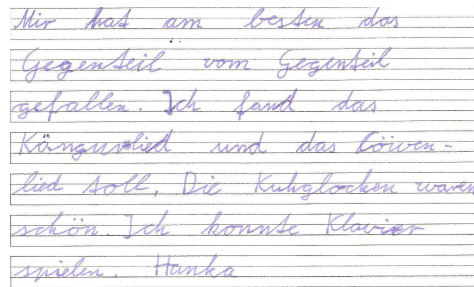 Mir hat am besten das
Gegenteil vom Gegenteil
gefallen. Ich fand das
Känguruhlied und das Löwen-
lied toll. Die Kuhglocken waren
schön. Ich konnte Klavier
spielen. Hanka